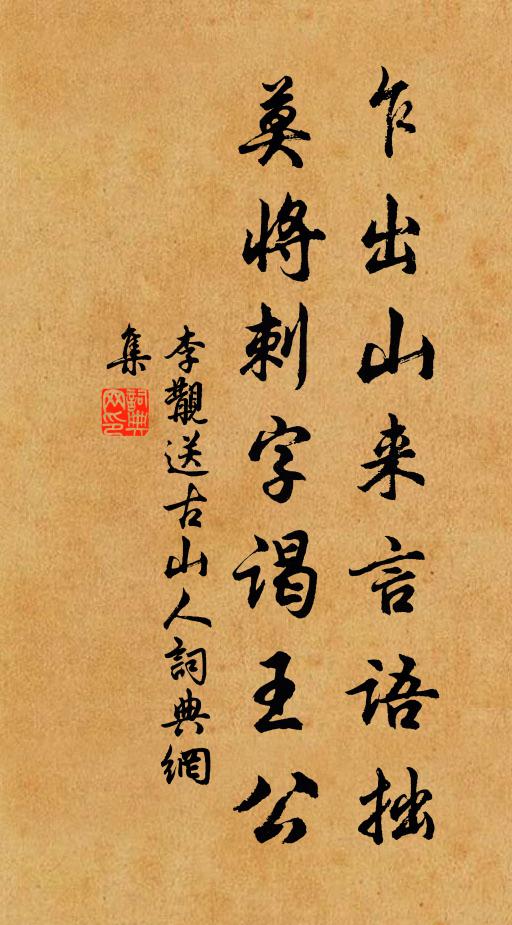 乍出山来言语拙
莫将刺字谒王公
李觀送古山人詞典網
集
詞典
网印